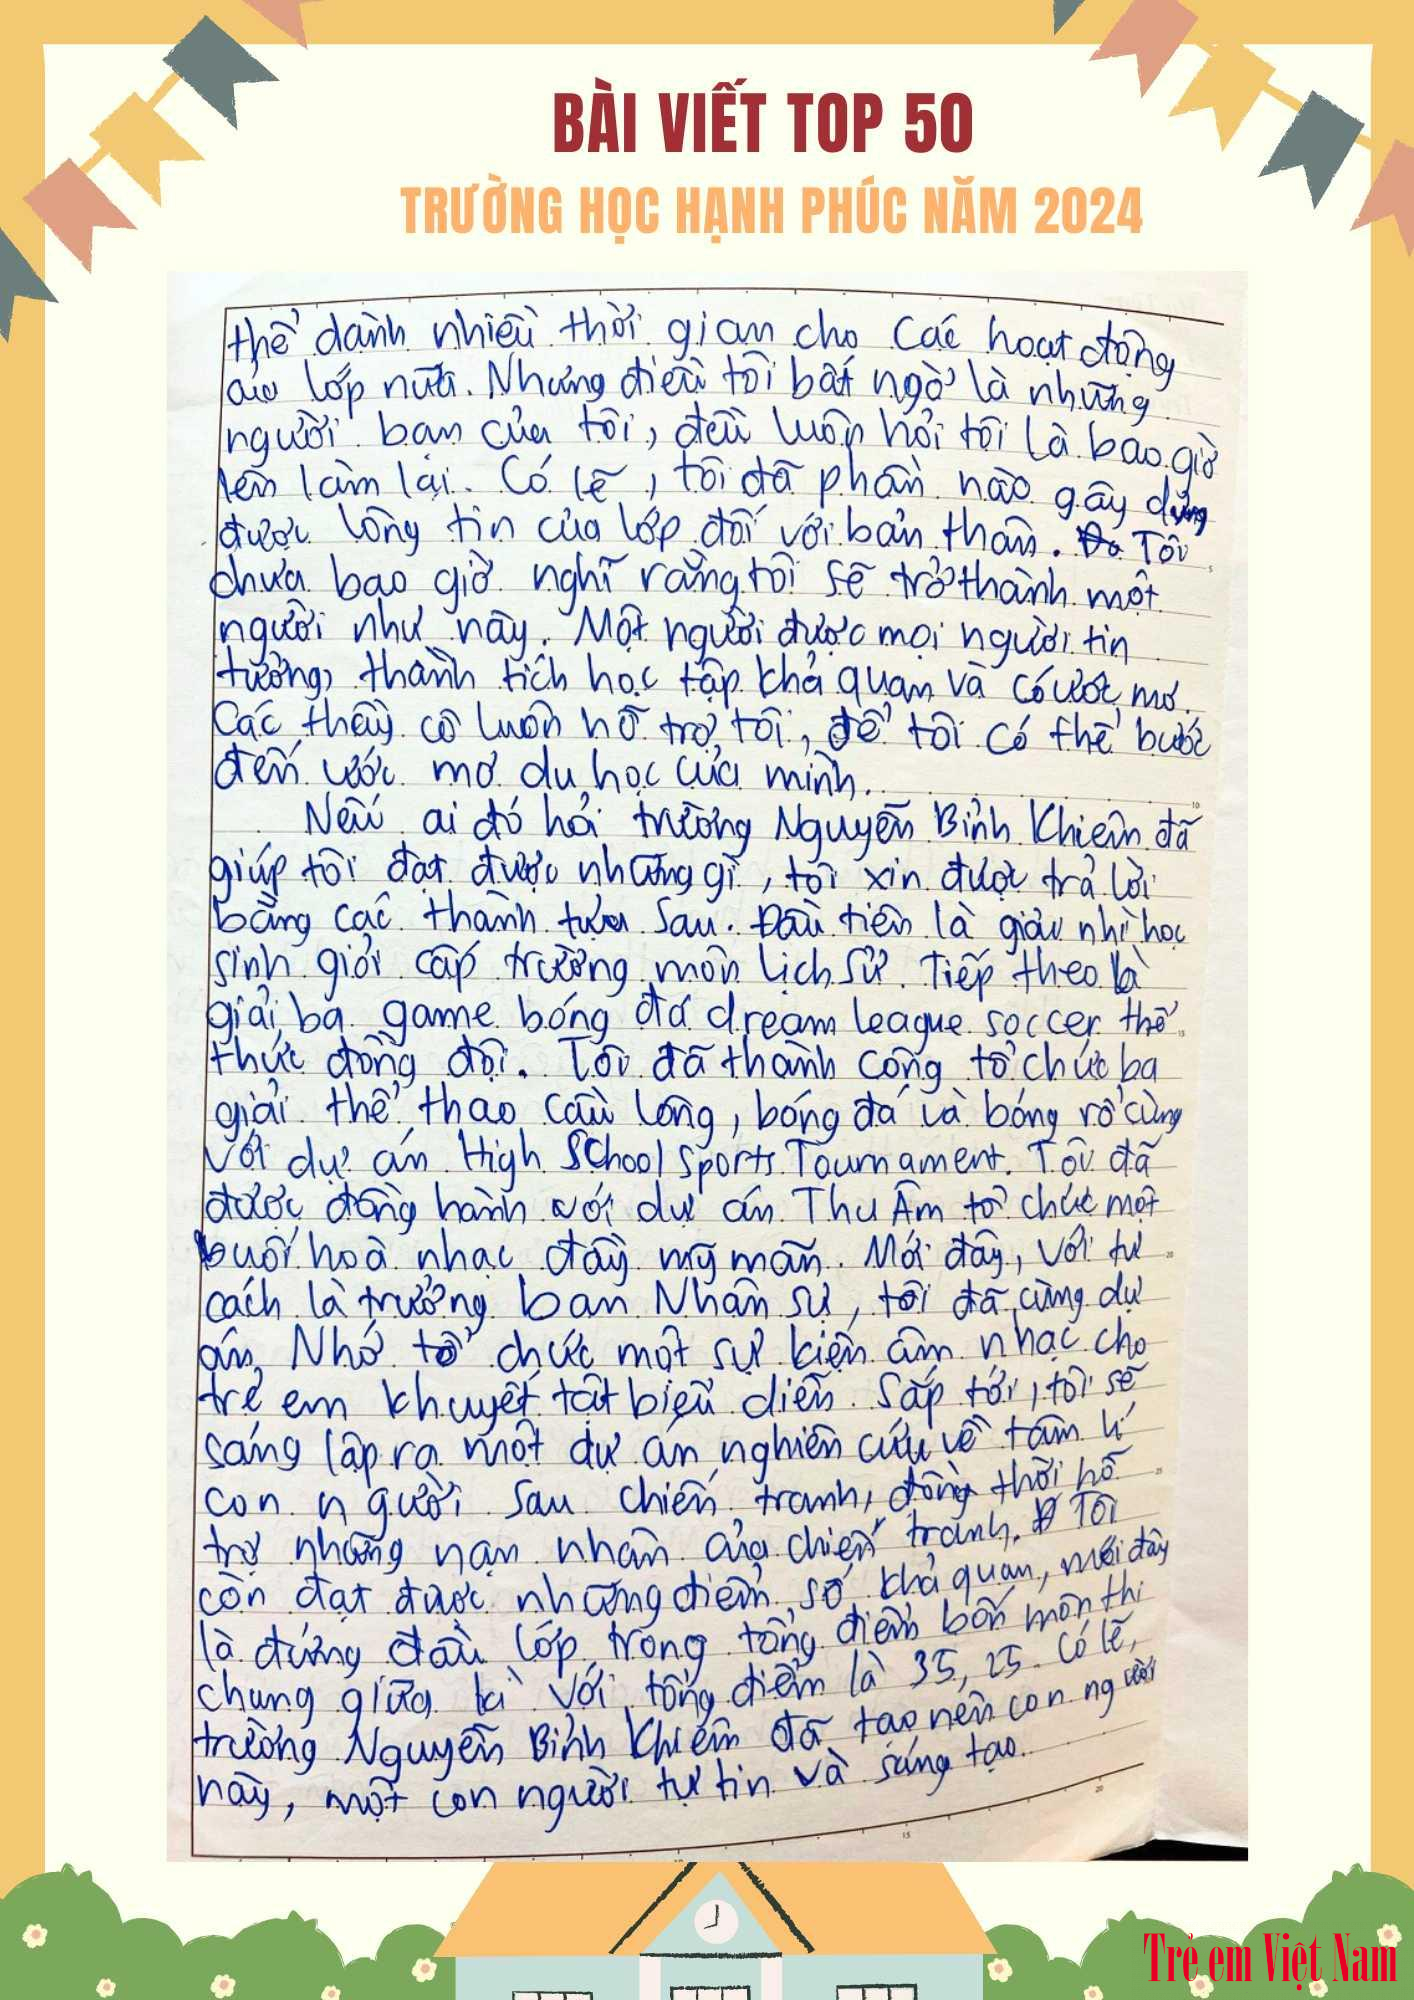 BÀI VIẾT TOP 50
TRƯỜNG HỌC HẠNH PHÚC NĂM 2024
thể dành nhiều thời gian cho các hoạt động
của lớp nữa. Nhưng điều tôi bất ngờ là những
người bạn của tôi, đều luôn hỏi tôi là bao giờ
lên làm lại. Có lẽ, tôi đã phần nào gây dựng
được lòng tin của lớp đối với bản thân. Tôi
chưa bao giờ nghĩ rằng tôi sẽ trở thành một
người như này. Một người được mọi người tin
tưởng, thành tích học tập khả quan và có ước mơ.
Các thầy cô luôn hỗ trợ tôi, để tôi có thể bước
đến ước mơ du học của mình.
Nếu ai đó hỏi trường Nguyễn Bỉnh Khiêm đã
giúp tôi đạt được những gì, tôi xin được trả lời
bằng các thành tựu sau. Đầu tiên là giải nhì học
sinh giỏi cấp trường môn Lịch Sử. Tiếp theo là
giải ba game bóng đá dream league soccer thể
thức đồng đội. Tôi đã thành công tổ chức ba
giải thể thao cầu lông, bóng đá và bóng rổ cùng
với dự án High School Sports Tournament. Tôi đã
được đồng hành với dự án Thu Âm tổ chức một
buổi hoà nhạc đầy mỹ mãn. Mới đây, với tư
cách là trưởng ban Nhân sự, tôi đã cùng dự
án Nhớ tổ chức một sự kiện âm nhạc cho
trẻ em khuyết tật biểu diễn. Sắp tới, tôi sẽ
sáng lập ra một dự án nghiên cứu về tâm lí
con người sau chiến tranh, đồng thời hỗ
trợ những nạn nhân của chiến tranh. Tôi
còn đạt được những điểm số khả quan, mới đây
là đứng đầu lớp trong tổng điểm bốn môn thi
chung giữa kì với tổng điểm là 35,25. Có lẽ,
trường Nguyễn Bỉnh Khiêm đã tạo nên con người
này, một con người tự tin và sáng tạo.
Trẻ em Việt Nam